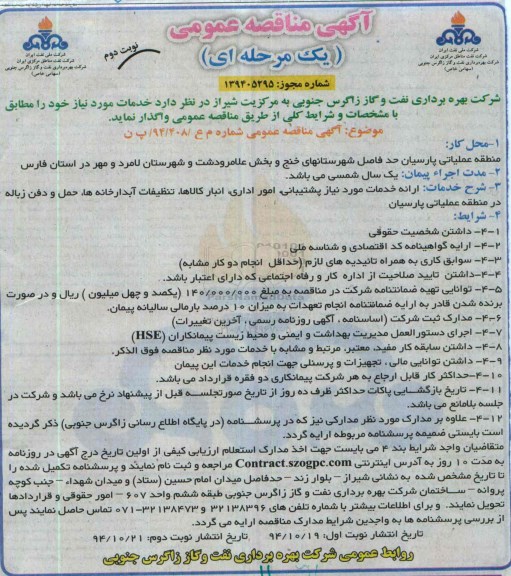 آگهی مناقصه عمومی
( یک مرحله ای )
نوبت دوم
شرکت ملی نفت ایران
شرکت نفت مناطق مرکزی ایران
شرکت بهره برداری نفت و گاز زاگرس جنوبی
(سهامی خاص)
شرکت ملی نفت ایران
شرکت نفت مناطق مرکزی ایران
شرکت بهره برداری نفت و گاز زاگرس جنوبی
(سهامی خاص)
شماره مجوز: ۱۳۹۴۰۵۲۹۵
شرکت بهره برداری نفت و گاز زاگرس جنوبی به مرکزیت شیراز در نظر دارد خدمات مورد نیاز خود را مطابق
با مشخصات و شرایط کلی از طریق مناقصه عمومی واگذار نماید.
موضوع: آگهی مناقصه عمومی شماره م ع /۹۴/۴۰۸/ پ ن
۱-محل کار:
منطقه عملیاتی پارسیان حد فاصل شهرستانهای خنج و بخش علامرودشت و شهرستان لامرد و مهر در استان فارس
۲- مدت اجراء پیمان: یک سال شمسی می باشد.
۳- شرح خدمات: ارائه خدمات مورد نیاز پشتیبانی، امور اداری، انبار کالاها، تنظیفات آبدارخانه ها، حمل و دفن زباله
در منطقه عملیاتی پارسیان
۴- شرایط:
۱-۴- داشتن شخصیت حقوقی
۲-۴- ارایه گواهینامه کد اقتصادی و شناسه ملی
۳-۴- سوابق کاری به همراه تائیدیه های لازم (حداقل انجام دو کار مشابه)
۴-۴-داشتن تایید صلاحیت از اداره کار و رفاه اجتماعی که دارای اعتبار باشد.
۵-۴- توانایی تهیه ضمانتنامه شرکت در مناقصه به مبلغ ۱۴۰/۰۰۰/۰۰۰ (یکصد و چهل میلیون ) ریال و در صورت
برنده شدن قادر به ارایه ضمانتنامه انجام تعهدات به میزان ۱۰ درصد بارمالی سالیانه پیمان.
۶-۴- مدارک ثبت شرکت (اساسنامه ، آگهی روزنامه رسمی ، آخرین تغییرات)
۷-۴- اجرای دستورالعمل مدیریت بهداشت و ایمنی و محیط زیست پیمانکاران (HSE)
۸-۴- داشتن سابقه کار مفید، معتبر، مرتبط و مشابه با خدمات مورد نظر مناقصه فوق الذکر.
۹-۴- داشتن توانایی مالی ، تجهیزات و پرسنلی جهت انجام خدمات این پیمان
۱۰-۴-حداکثر کار قابل ارجاع به هر شرکت پیمانکاری دو فقره قرارداد می باشد.
۱۱-۴- تاریخ بازگشایی پاکات حداکثر ظرف ده روز از تاریخ صورتجلسه قبل از پیشنهاد نرخ می باشد و شرکت در
جلسه بلامانع می باشد.
۱۲-۴- علاوه بر مدارک مورد نظر مدارکی نیز که در پرسشنامه (در پایگاه اطلاع رسانی زاگرس جنوبی) ذکر گردیده
است بایستی ضمیمه پرسشنامه مربوطه ارایه گردد.
متقاضیان واجد شرایط بند ۴ می بایست جهت اخذ مدارک استعلام ارزیابی کیفی از اولین تاریخ درج آگهی در روزنامه
به مدت ۱۰ روز به آدرس اینترنتی Contract.szogpc.com مراجعه و ثبت نام نمایند و پرسشنامه تکمیل شده را
تا تاریخ مشخص شده به نشانی شیراز – بلوار زند – حدفاصل میدان امام حسین (ستاد) و میدان شهداء – جنب کوچه
پروانه – ساختمان شرکت بهره برداری نفت و گاز زاگرس جنوبی طبقه ششم واحد ۶۰۷ – امور حقوقی و قراردادها
تحویل نمایند. و برای اطلاعات بیشتر با شماره تلفن های ۳۲۱۳۸۳۹۶ و ۳۲۱۳۸۴۷۳-۰۷۱ تماس حاصل نمایند پس
از بررسی پرسشنامه ها به واجدین شرایط مدارک مناقصه ارایه می گردد.
تاریخ انتشار نوبت اول: ۹۴/۱۰/۱۹ تاریخ انتشار نوبت دوم: ۹۴/۱۰/۲۱
روابط عمومی شرکت بهره برداری نفت و گاز زاگرس جنوبی